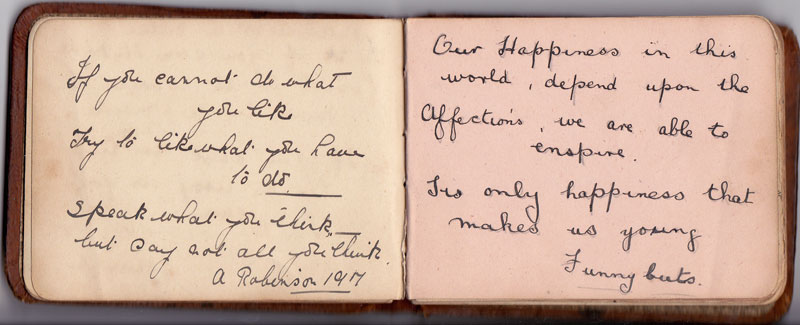 If you cannot do what
you like
Try to like what you have
to do.
Speak what you think
but say not all you think.
A Robinson 1917
Our Happiness in this
world, depend upon the
Affections, we are able to
enspire.
Tis only happiness that
makes us young
Funny buts.